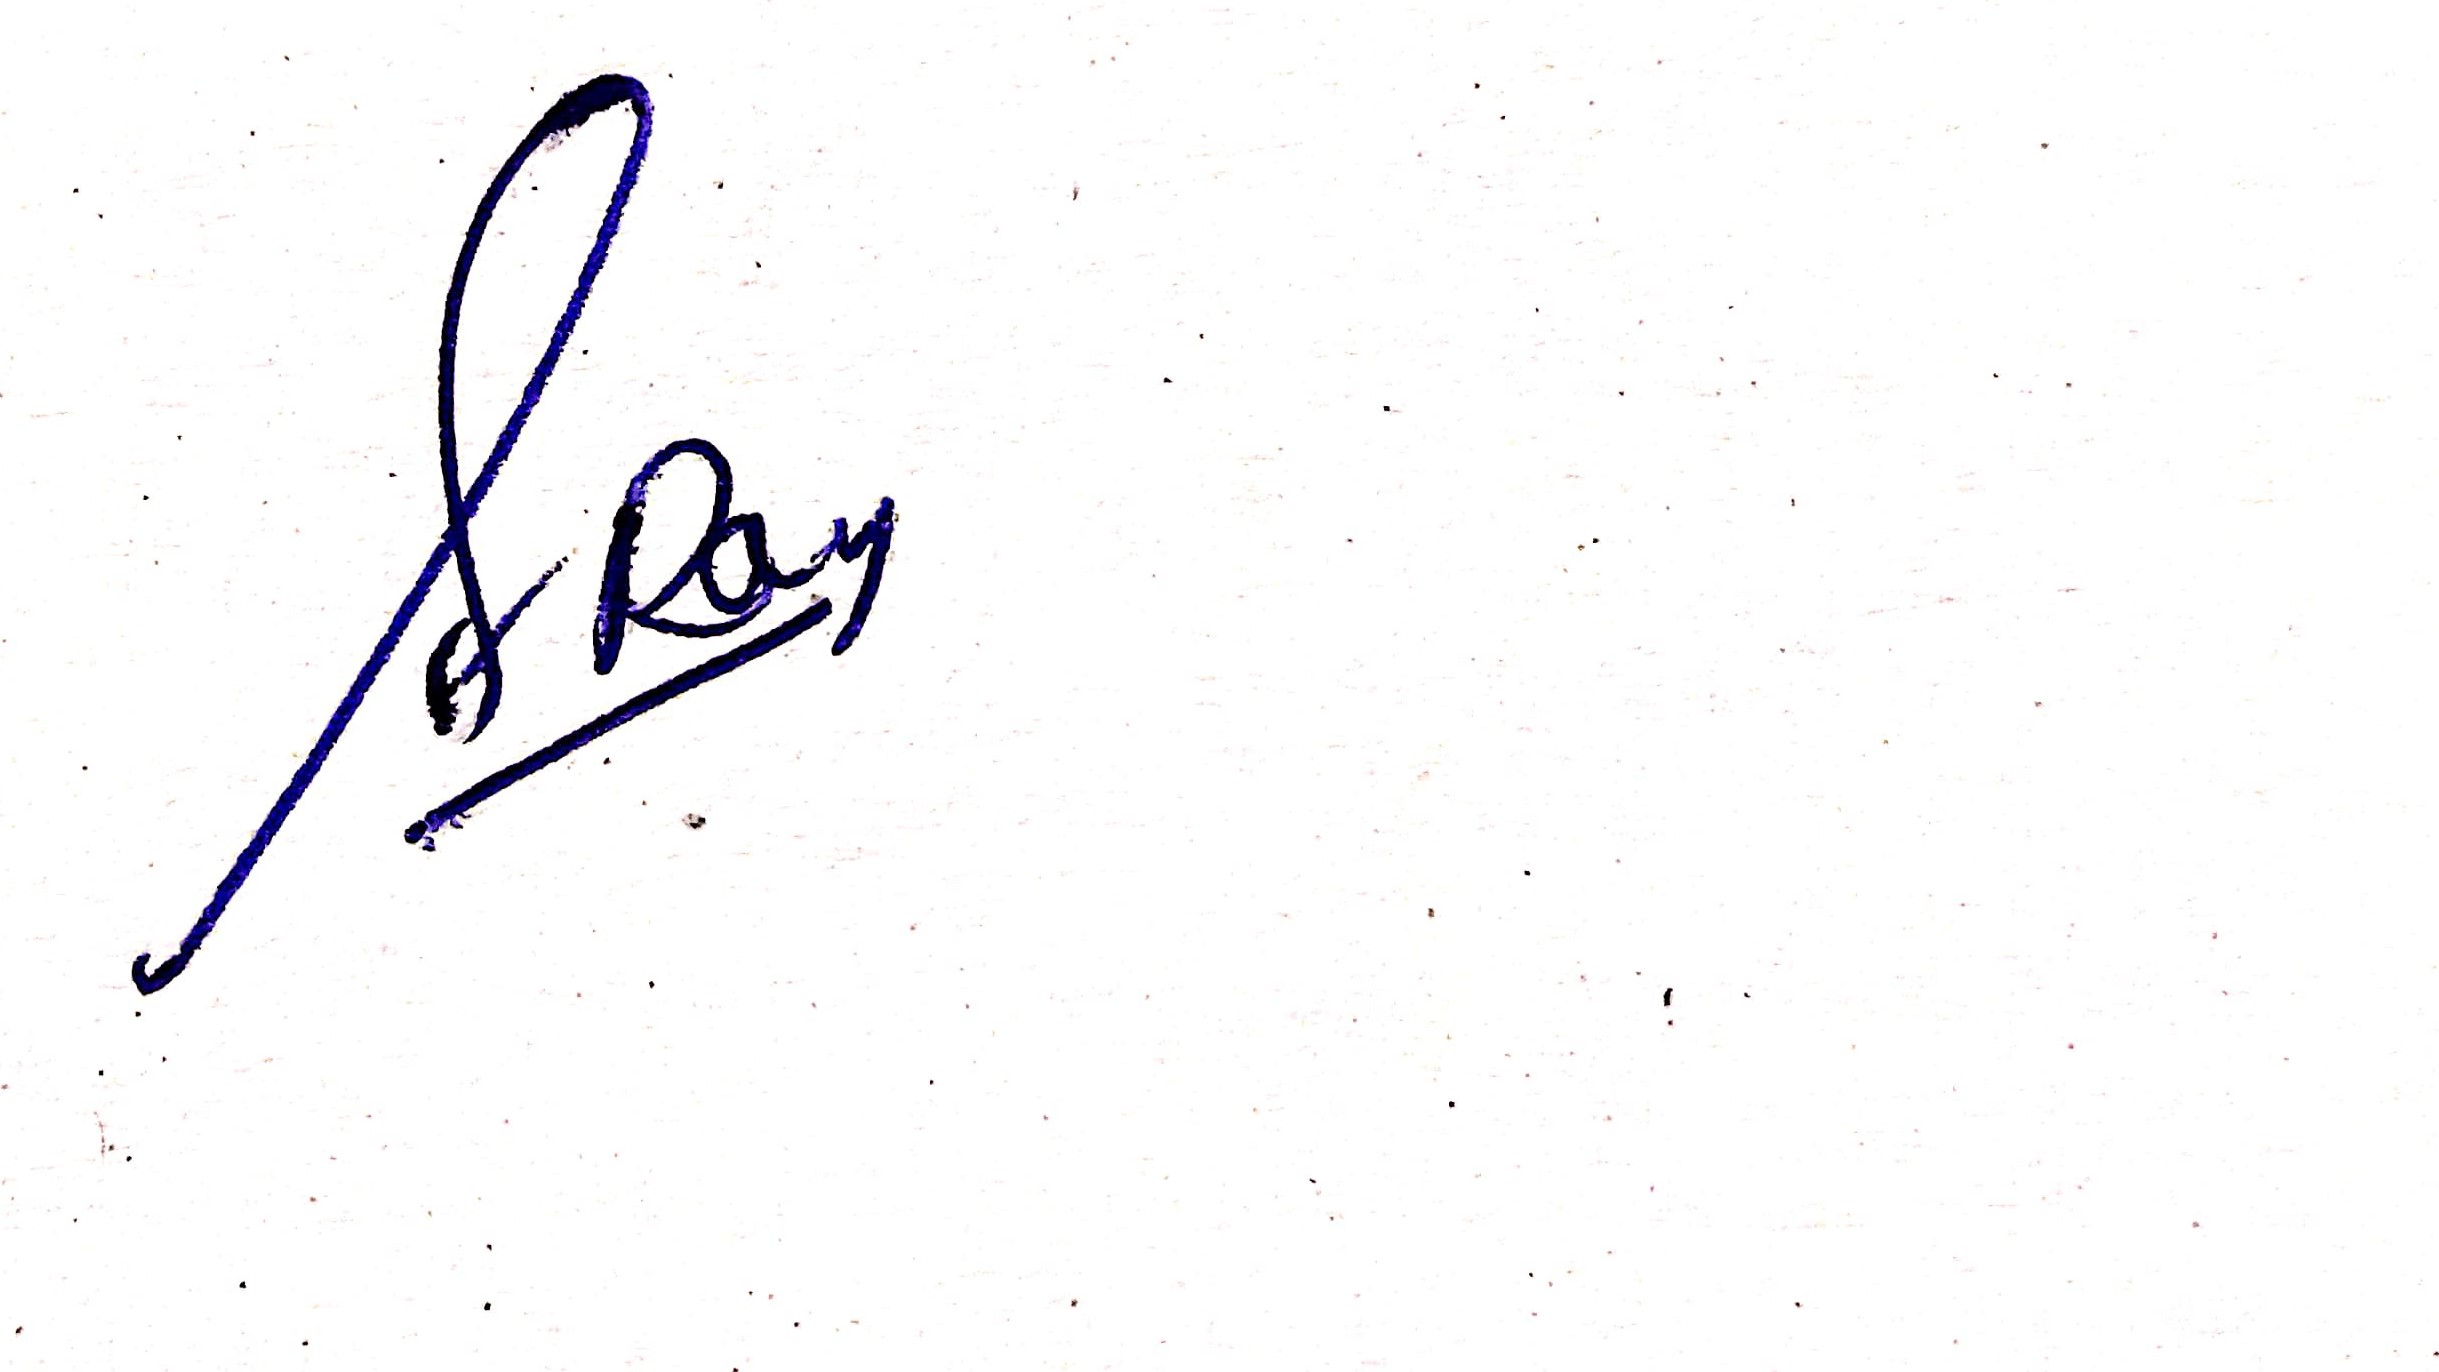 S Ray